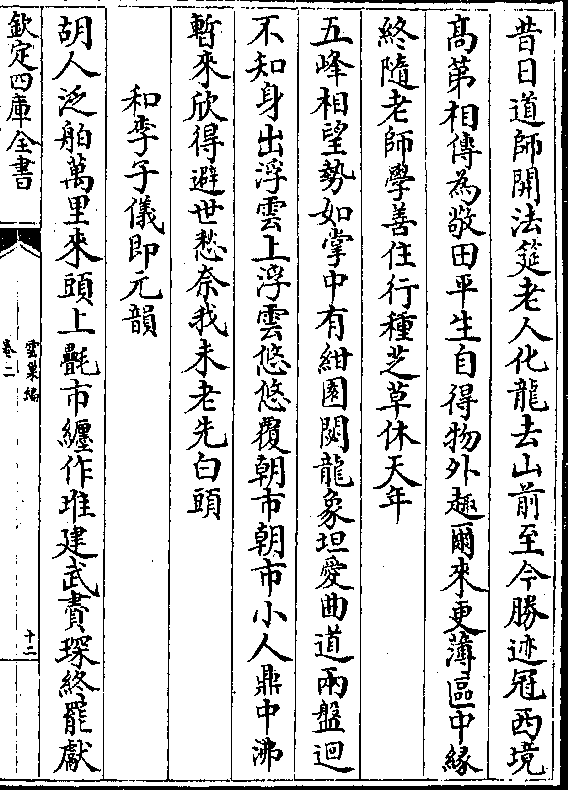 昔日道師開法筵老人化龍去山前至今勝迹冠西境
髙苐相傳為敬田平生自得物外趣爾來更薄區中緣
終隨老師學善住行種芝草休天年
五峰相望勢如掌中有紺園閟龍象坦愛曲道兩盤迴
不知身出浮雲上浮雲悠悠覆朝市朝市小人鼎中沸
暫來欣得避世愁奈我未老先白頭
和李子儀即元韻
胡人泛舶萬里來頭上㲲市纏作堆建武賚琛終罷獻
欽定四庫全書
雲巢編
卷二
十二